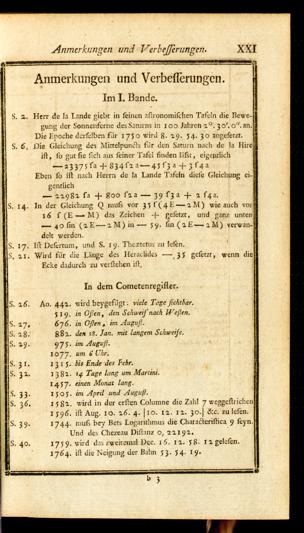 Anmerkungen und Verbesserungen. XXI
Anmerkungen und Verbesserungen.
Im I. Bande.
S. 2. Herr de la Lande giebt in seinen astronomischen Tafeln die Bewe-
gung der Sonnenferne des Saturns in 100 Jahren 2°. 30'. 0". an.
Die Epoche derselben für 1750 wird 8. 29. 54. 30 angesetzt.
S. 6. Die Gleichung des Mittelpuncts für den Saturn nach de la Hire
ist, so gut sie sich aus seiner Tafel finden lässt, eigentlich
— 23375 ſa + 834 ſ2a — 45 ſ3a + 3 ſ4a
Eben so ist nach Herrn de la Lande Tafeln diese Gleichung ei-
gentlich
— 22982 ſa + 800 ſ2a — 39 ſ3a + 2 ſ4a.
S. 14. In der Gleichung Q muss vor 35 ſ (4E — 2M) wie auch vor
16 ſ (E — M) das Zeichen + gesetzt, und ganz unten
— 40 sin (2E — 2M) in — 59. sin (2E — 2M) verwan-
delt werden.
S. 17. Ist Desertum, und S. 19. Theætetus zu lesen.
S. 21. Wird für die Länge des Heraclides — 35 gesetzt, wenn die
Ecke dadurch zu verstehen ist.
In dem Cometenregister.
S. 26. An. 442. wird beygefügt: viele Tage sichtbar.
519. in Osten, den Schweif nach Westen.
S. 27. 676. in Osten, im August.
S. 28. 882. den 18. Jan. mit langem Schweife.
S. 29. 975. im August.
1077. um 6 Uhr.
S. 31. 1315. bis Ende des Febr.
S. 32. 1382. 14 Tage lang um Martini.
1457. einen Monat lang.
S. 33. 1505. im April und August.
S. 36. 1582. wird in der ersten Columne die Zahl 7 weggestrichen
1596. ist Aug. 10. 26. 4. | 10. 12. 12. 30. | &c. zu lesen.
S. 39. 1744. muss bey Bets Logarithmus die Characteristica 9 seyn.
Und des Chezeau Distanz 0, 22192.
S. 40. 1759. wird das zweitemal Dec. 16. 12. 58. 12 gelesen.
1764. ist die Neigung der Bahn 53. 54. 19.
b 3